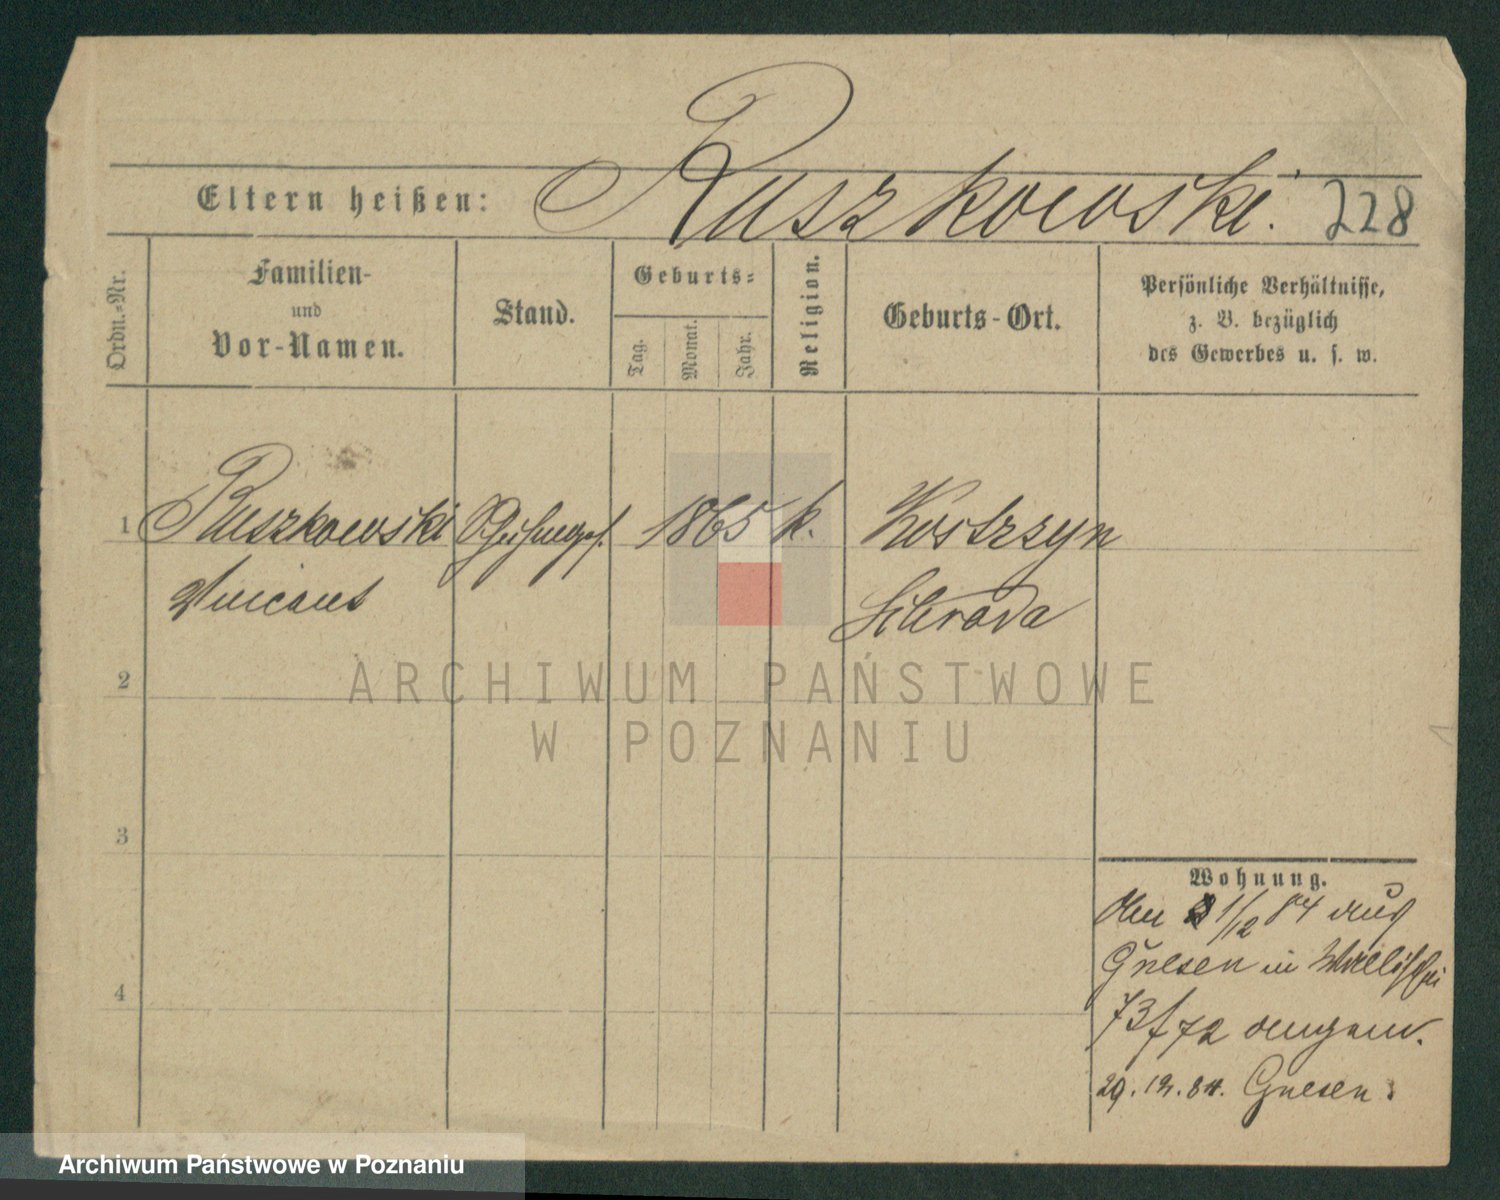 Eltern heißen: Ruszkowski. 228
Ordn.-Nr.
Familien-
und
Vor-Namen.
Stand.
Geburts-
Tag.
Monat.
Jahr.
Religion.
Geburts-Ort.
Persönliche Verhältnisse,
z. B. bezüglich
des Gewerbes u. s. w.
1 Ruszkowski 1865 k. Kostrzyn
Vincent
Schroda
2
ARCHIWUM PAŃSTWOWE
W POZNANIU
3
Wohnung.
1/12 84 aus
Gnesen in Wallischei
73/72 angem.
4
29.12.84. Gnesen.
Archiwum Państwowe w Poznaniu